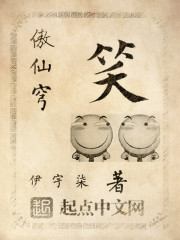 笑
傲仙穹
伊宇柒 著
起点中文网